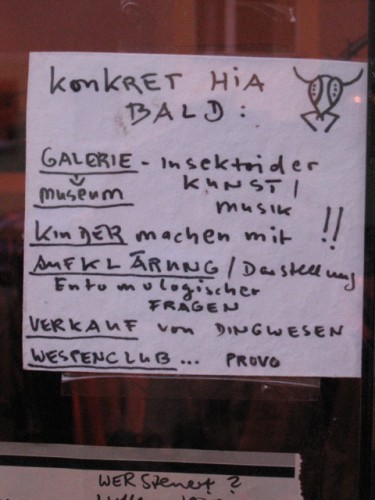 konkRET HiA
BALD:
GALERIE - Insektoider
museum KUNST /
musik
KinDER machen mit !!
AUFKLÄRUNG / Darstellung
Entomologischer
FRAGEN
VERKAUF von DINGWESEN
WESPENCLUB... PROVO
WER